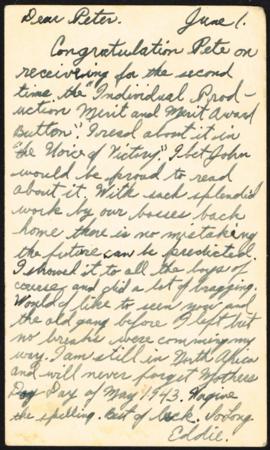 Dear Peter. June 1.
Congratulation Pete on
receiving for the second
time the "Individual Prod-
uction Merit and Merit Award
Button", I read about it in
"the Voice of Victory." I bet John
would be proud to read
about it. With such splendid
work by our bosses back
home there is no mistaking
the future can be predicted.
I showed it to all the boys of
course, and did a lot of bragging.
Would of like to seen you and
the old gang before I left but
no breaks were comming my
way. I am still in North Africa
and will never forget Mothers
Day Day of May 1943. Forgive
the spelling. Best of luck. So Long
Eddie.